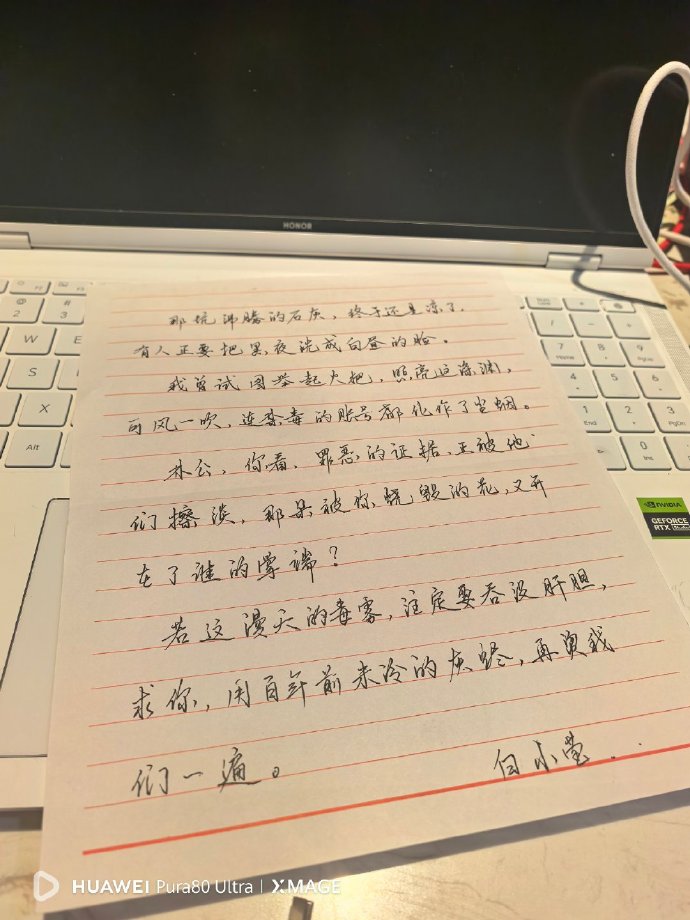 HONOR
那坑沸腾的石灰，终于还是凉了，
有人正要把黑夜洗成白昼的脸。
我曾试图举起火把，照亮这深渊，
可风一吹，连禁毒的账号都化作了尘烟。
林公，你看，罪恶的证据，正被他
们擦淡，那朵被你烧毁的花，又开
在了谁的掌端？
若这漫天的毒雾，注定要吞没肝胆，
求你，用百年前未冷的灰烬，再烫我
们一遍。
白小莹
2
3
W
E
S
D
X
Alt
7
Home
8
9
PgUp
4
5
6
1
End
2
3
PgDn
0
Ins
NVIDIA
GEFORCE
RTX
HUAWEI Pura80 Ultra | XMAGE